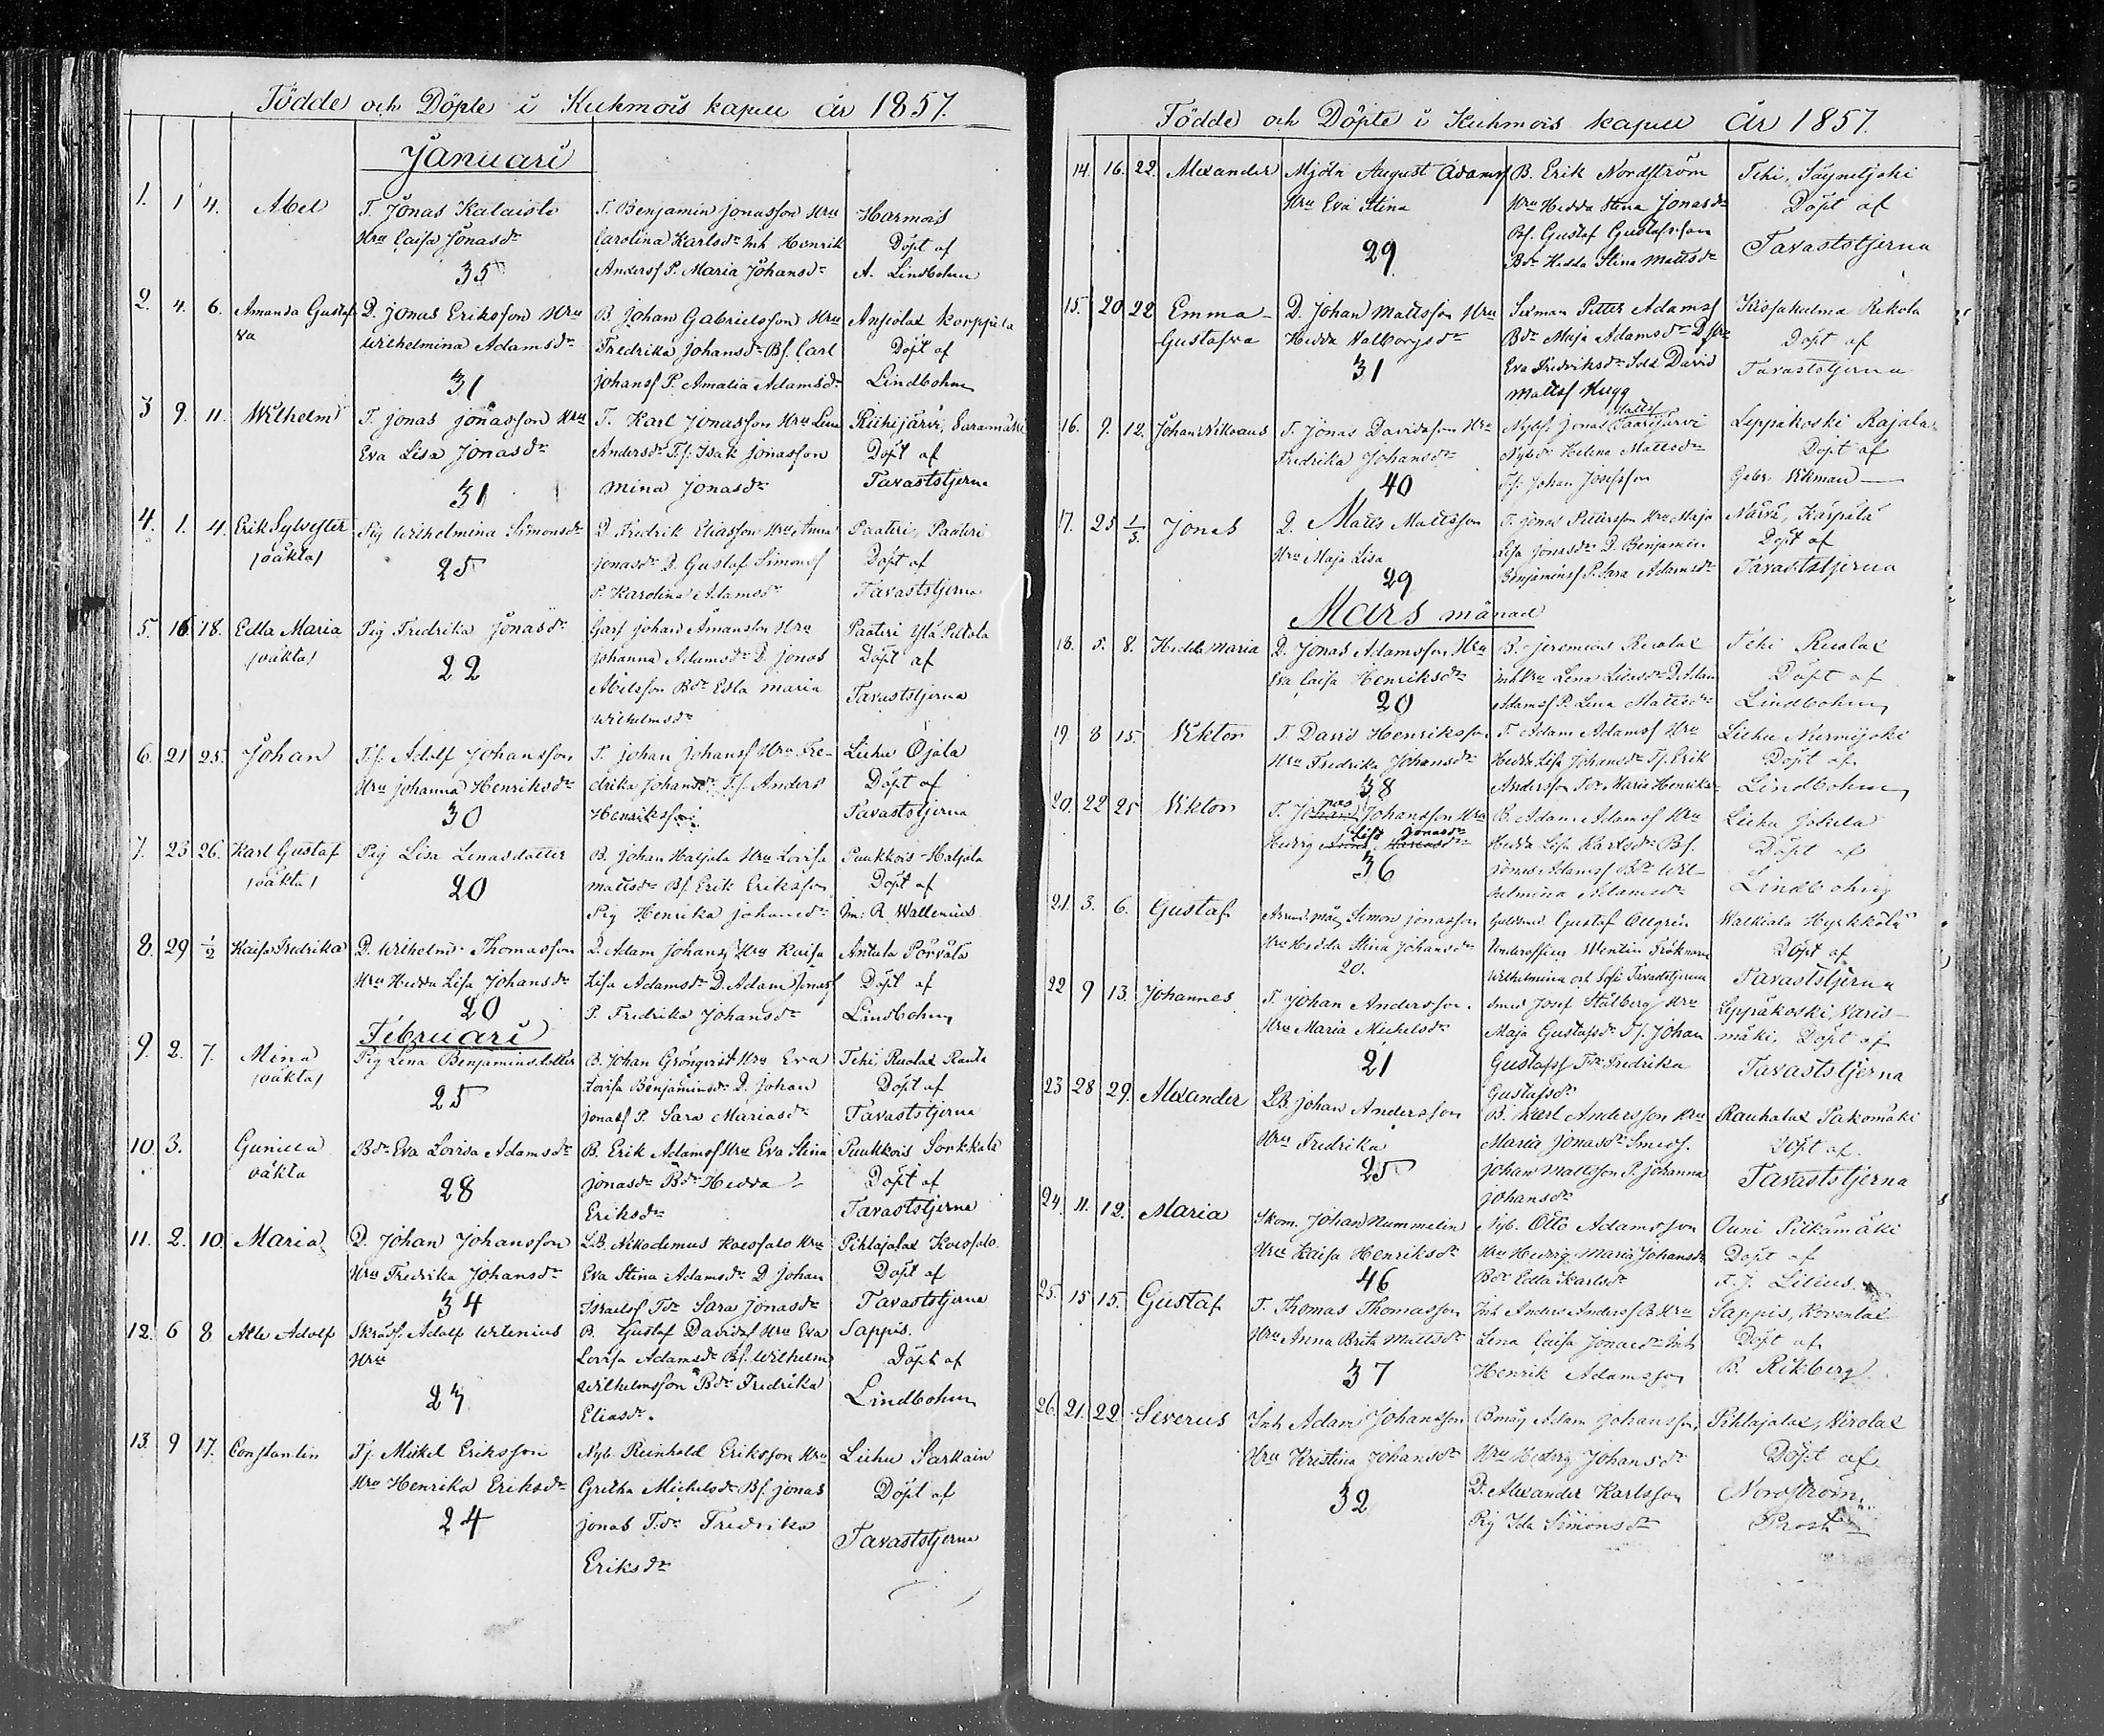 Födde och Döpte i Kuhmois kapell år 1857.
Januari
1. 1 4. Abel
T. Jonas Kalaisto
Hru Caisa Jonasdr
35
T. Benjamin Jonasson Hru
Carolina Karlsdr Inh Henrik
Anderss P. Maria Johansdr
Harmois
Döpt af
A. Lindbohm
2. 4. 6. Amanda Gustaf
va
D. Jonas Eriksson Hru
Wilhelmina Adamsdr
31
B. Johan Gabrielsson Hru
Fredrika Johansdr Bs. Carl
Johanss P. Amalia Adamsdr
Ansiolax Korppila
Döpt af
Lindbohm
3 9. 11. Wilhelm
T. Jonas Jonasson Hru
Eva Lisa Jonasdr
31
T. Karl Jonasson Hru Lena
Andersdr Ts. Isak Jonasson
Mina Jonasdr
Riihijärvi, Saramäki
Döpt af
Tavaststjerna
4. 1. 4. Erik Sylvester
/oäkta/
Pig Wilhelmina Simonsdr
25
D. Fredrik Eliasson Hru Anna
Jonasdr D. Gustaf Simonss
P. Karolina Adamsdr
Paateri, Paateri
Döpt af
Tavaststjerna
5. 16 18. Edla Maria
/oäkta/
Pig Fredrika Jonasdr
22
Garf Johan Åmansson Hru
Johanna Adamsdr D. Jonas
Abelsson Bdr Edla Maria
Wilhelmsdr
Paateri Ylä Peltola
Döpt af
Tavaststjerna
6. 21 25. Johan
Ts. Adolf Johansson
Hru Johanna Henriksdr
30
T. Johan Johanss Hru Fre-
drika Johansdr Ts. Anders
Henriksson
Liehu Ojala
Döpt af
Tavaststjerna
7. 23 26. Karl Gustaf
/oäkta/
Pig Lisa Lenasdotter
20
B. Johan Haljala Hru Lovisa
Mattsdr Bs. Erik Eriksson
Pig Henrika Johansdr
Puukkois Haljala
Döpt af
R. Wallenius
8. 29 1/2 Kaisa Fredrika
D. Wilhelm Thomasson
Hru Hedda Lisa Johansdr
20
D. Adam Johanss Hru Kaisa
Lisa Adamsdr D. Adam Jonass
P. Fredrika Johansdr
Anttila Pörvälä
Döpt af
Lindbohm
Februari
9. 2. 7. Mina
/oäkta/
Pig Lena Benjaminsdotter
25
B. Johan Grönqvist Hru Eva
Lovisa Benjaminsdr D. Johan
Jonass P. Sara Mariasdr
Tehi, Ruolax Ranta
Döpt af
Tavaststjerna
10. 3. Gunilla
oäkta
Bdr Eva Lovisa Adamsdr
28
B. Erik Adamss Hru Eva Stina
Jonasdr Bdr Hedda
Eriksdr
Puukkois Sorkkala
Döpt af
Tavaststjerna
11. 2. 10. Maria
D. Johan Johansson
Hru Fredrika Johansdr
34
L.B. Nikodemus Koessalo Hru
Eva Stina Adamsdr D Johan
Israelss Tdr Sara Jonasdr
Pihlajalax Koessalo
Döpt af
Tavaststjerna
12. 6 8 Atle Adolf
Skrädd. Adolf Wilenius
Hru
27
B. Gustaf Davidss Hru Eva
Lovisa Adamsdr Bs. Wilhelm
Wilhelmsson Bdr Fredrika
Eliasdr.
Sappis.
Döpt af
Lindbohm
13. 9 17. Constantin
Tj. Mikel Eriksson
Hru Henrika Eriksdr
24
Nyb. Reinhold Eriksson Hru
Gretha Michelsdr Bs. Jonas
Jonas T.dr Fredrika
Eriksdr
Liehu Sarkain
Döpt af
Tavaststjerna
Födde och Döpte i Kuhmois kapell År 1857.
14. 16. 22. Alexander
Mjöln August Adamss
Hru Eva Stina
29.
B. Erik Nordström
Hru Hedda Stina Jonasdr
Bs. Gustaf Gustafsson
Bdr Hedda Stina Mattsdr
Tehi, Säynetjoki
Döpt af
Tavaststjerna
15. 20 22 Emma
Gustafva
D. Johan Mattsson Hru
Hedda Valborgsdr
31
Sexman Petter Adamss
Bdr Maja Adamsdr D Hru
Eva Fredriksdr Sold David
Mattss Hugg
Kissakulma Rekola
Döpt af
Tavaststjerna
16. 9. 12. Johan Nikolaus
T. Jonas Davidsson Hru
Fredrika Johansdr
40
Mattss
Nybs. Jonas Saarijärvi
Nybdr Helena Mattsdr
Ts. Johan Josefsson
Leppäkoski Rajala
Döpt af
Gabr. Wikman
17. 25 1/3. Jonas
D. Matts Mattsson
Hru Maja Lisa
29
T. Jonas Pettersson Hru Maja
Lisa Jonasdr D. Benjamin
Benjaminss P. Sara Adamsdr
Närvä, Karpälä
Döpt af
Tavaststjerna
Mars månad
18. 5. 8. Hedda Maria
D. Jonas Adamsson Hru
Eva Caisa Henriksdr
20
B. Jeremias Ruolax
Inh Hru Lena Lisasdr D. Adam
Adamss P. Lena Mattsdr
Tehi Ruolax
Döpt af
Lindbohm
19. 8 15. Viktor
T. David Henriksson
Hru Fredrika Johansdr
38
T. Adam Adamss Hru
Hedda Lisa Johansdr Ts. Erik
Andersson Tdr Maria Henriksdr
Liehu Niemijoki
Döpt af
Lindbohm
20. 22 25 Viktor
T. Jonas Johansson Hru
Hedvig Lisa Jonasdr
36
B. Adam Adamss Hru
Hedda Lisa Karlsdr Bs.
Jonas Adamss Bdr Wil-
helmina Adamsdr
Liehu Jokela
Döpt af
Lindbohm
21. 3. 6. Gustaf
Simon Jonasson
Hru Hedda Stina Johansdr
20.
Guldsmed Gustaf Allgrén
Underofficer Wentin Fröknarne
Wilhelmina och Sofie Tavaststjerna
Walkiala Hyrkkölä
Döpt af
Tavaststjerna
22 9 13. Johannes
T. Johan Andersson.
Hru Maria Michelsdr
21
Smed Josef Stålberg Hru
Maja Gustafsdr Ts. Johan
Gustafss Tdr Fredrika
Gustafsdr
Leppäkoski, Varis-
mäki. Döpt af
Tavaststjerna
23 28 29. Alexander
LB. Johan Andersson
Hru Fredrika
25
B. Karl Andersson Hru
Maria Jonasdr Smeds.
Johan Mattsson P. Johanna
Johansdr
Rauhalax Pakomäki
Döpt af.
Tavaststjerna
24. 11. 12. Maria
Skom. Johan Nummelin
Hru Kaisa Henriksdr
46
Nyb. Otto Adamsson
Hru Hedvig Maria Johansdr
Bdr Edla Karlsdr
Ouni Pitkämäki
Döpt af
Lilius
25. 15 15. Gustaf
T. Thomas Thomasson
Hru Anna Brita Mattsdr
37
Inh Anders Anderss B Hru
Lena Caisa Jonasdr Inh
Henrik Adamsson
Sappis, Koventax
Döpt af
B. Rikberg
26. 21. 22. Severus
Inh Adam Johansson
Hru Kristina Johansdr
32
Bmåg Adam Johansson
Hru Hedvig Johansdr
D. Alexander Karlsson
Pig Ida Simonsdr
Pihlajalax, Nirolax
Döpt af
Nordström
Prost